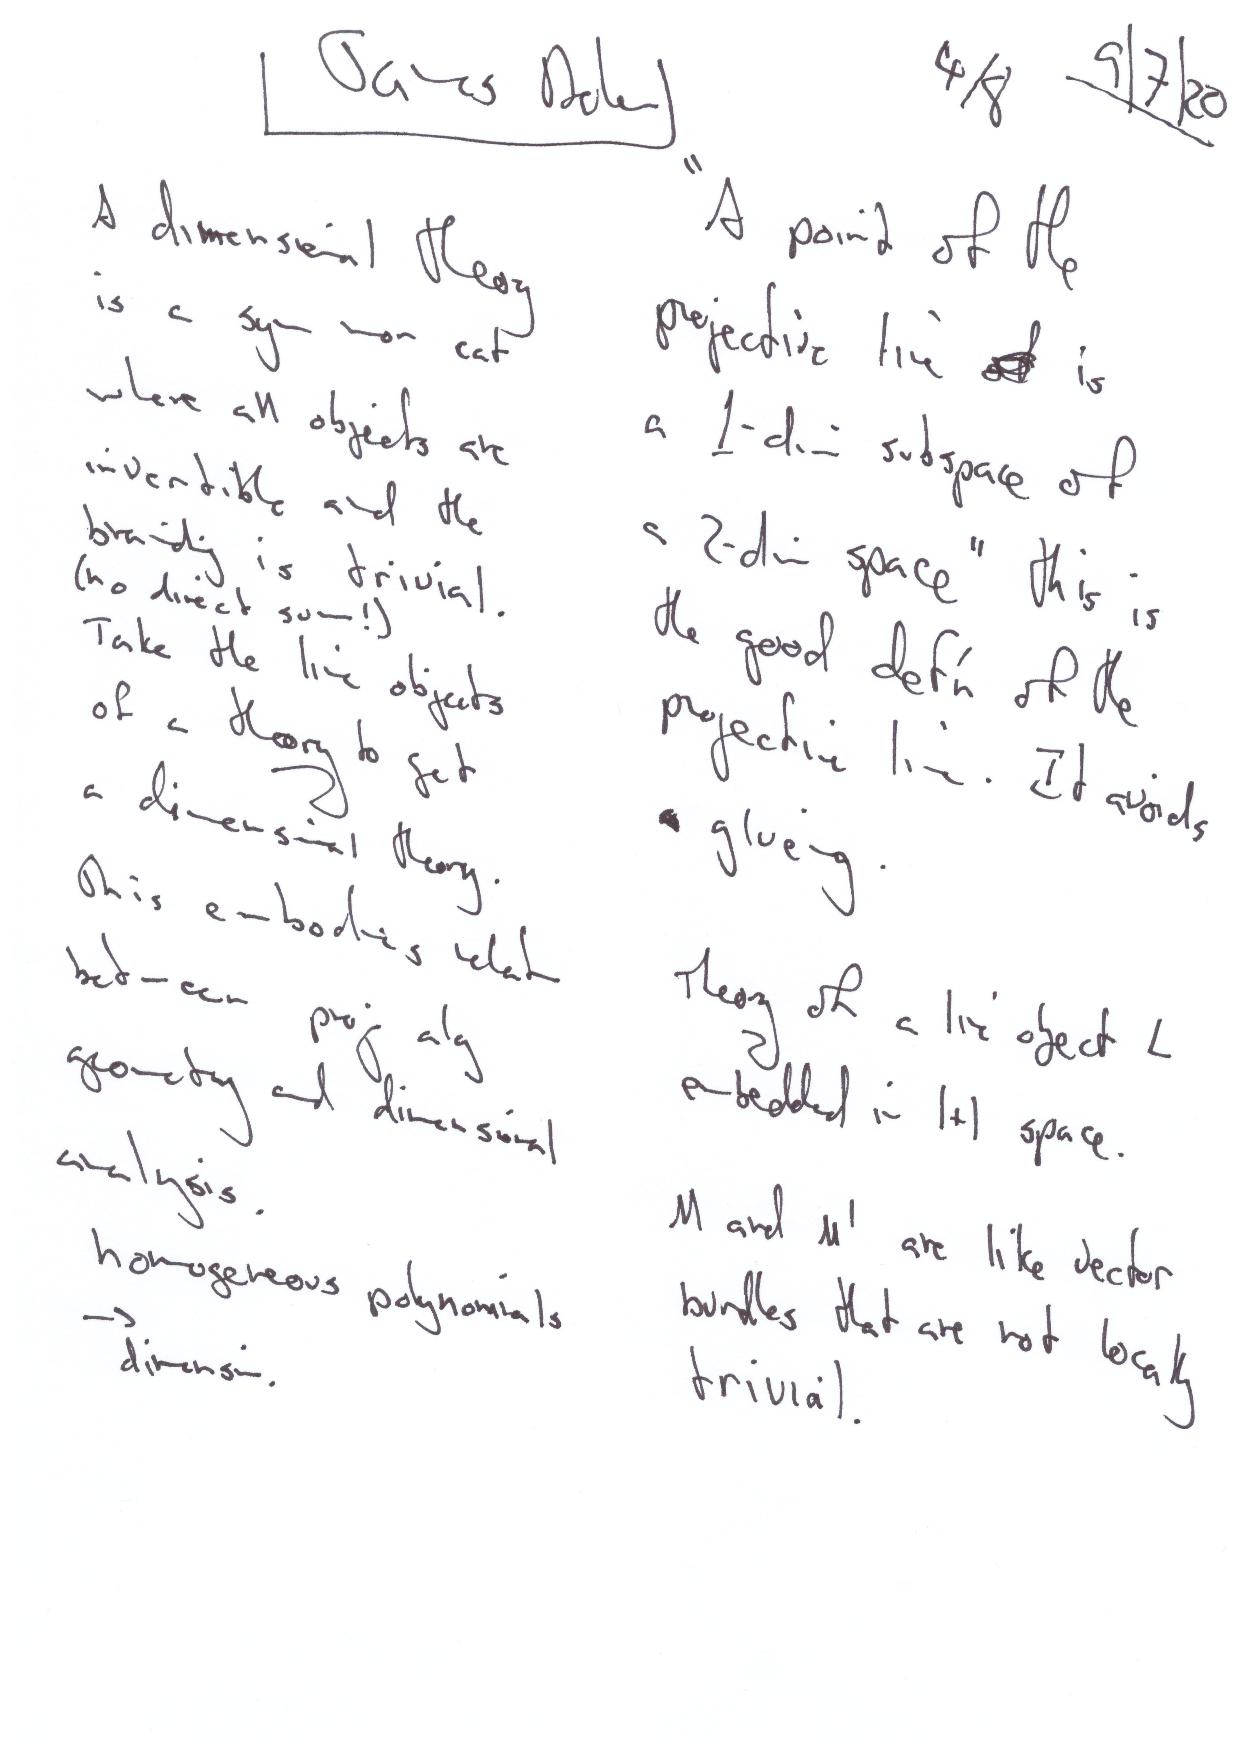 James Dolan
4/8 9/7/20
A dimensional theory
is a sym mon cat
where all objects are
invertible and the
braiding is trivial.
(no direct sum!)
Take the line objects
of a theory to get
a dimensional theory.
This embodies relat
between proj alg
geometry and dimensional
analysis.
homogeneous polynomials
→
dimension.
"A point of the
projective line is
a 1-dim subspace of
a 2-dim space" this is
the good def'n of the
projective line. It avoids
glueing.
Theory of a line object L
embedded in 1+1 space.
M and M' are like vector
bundles that are not locally
trivial.